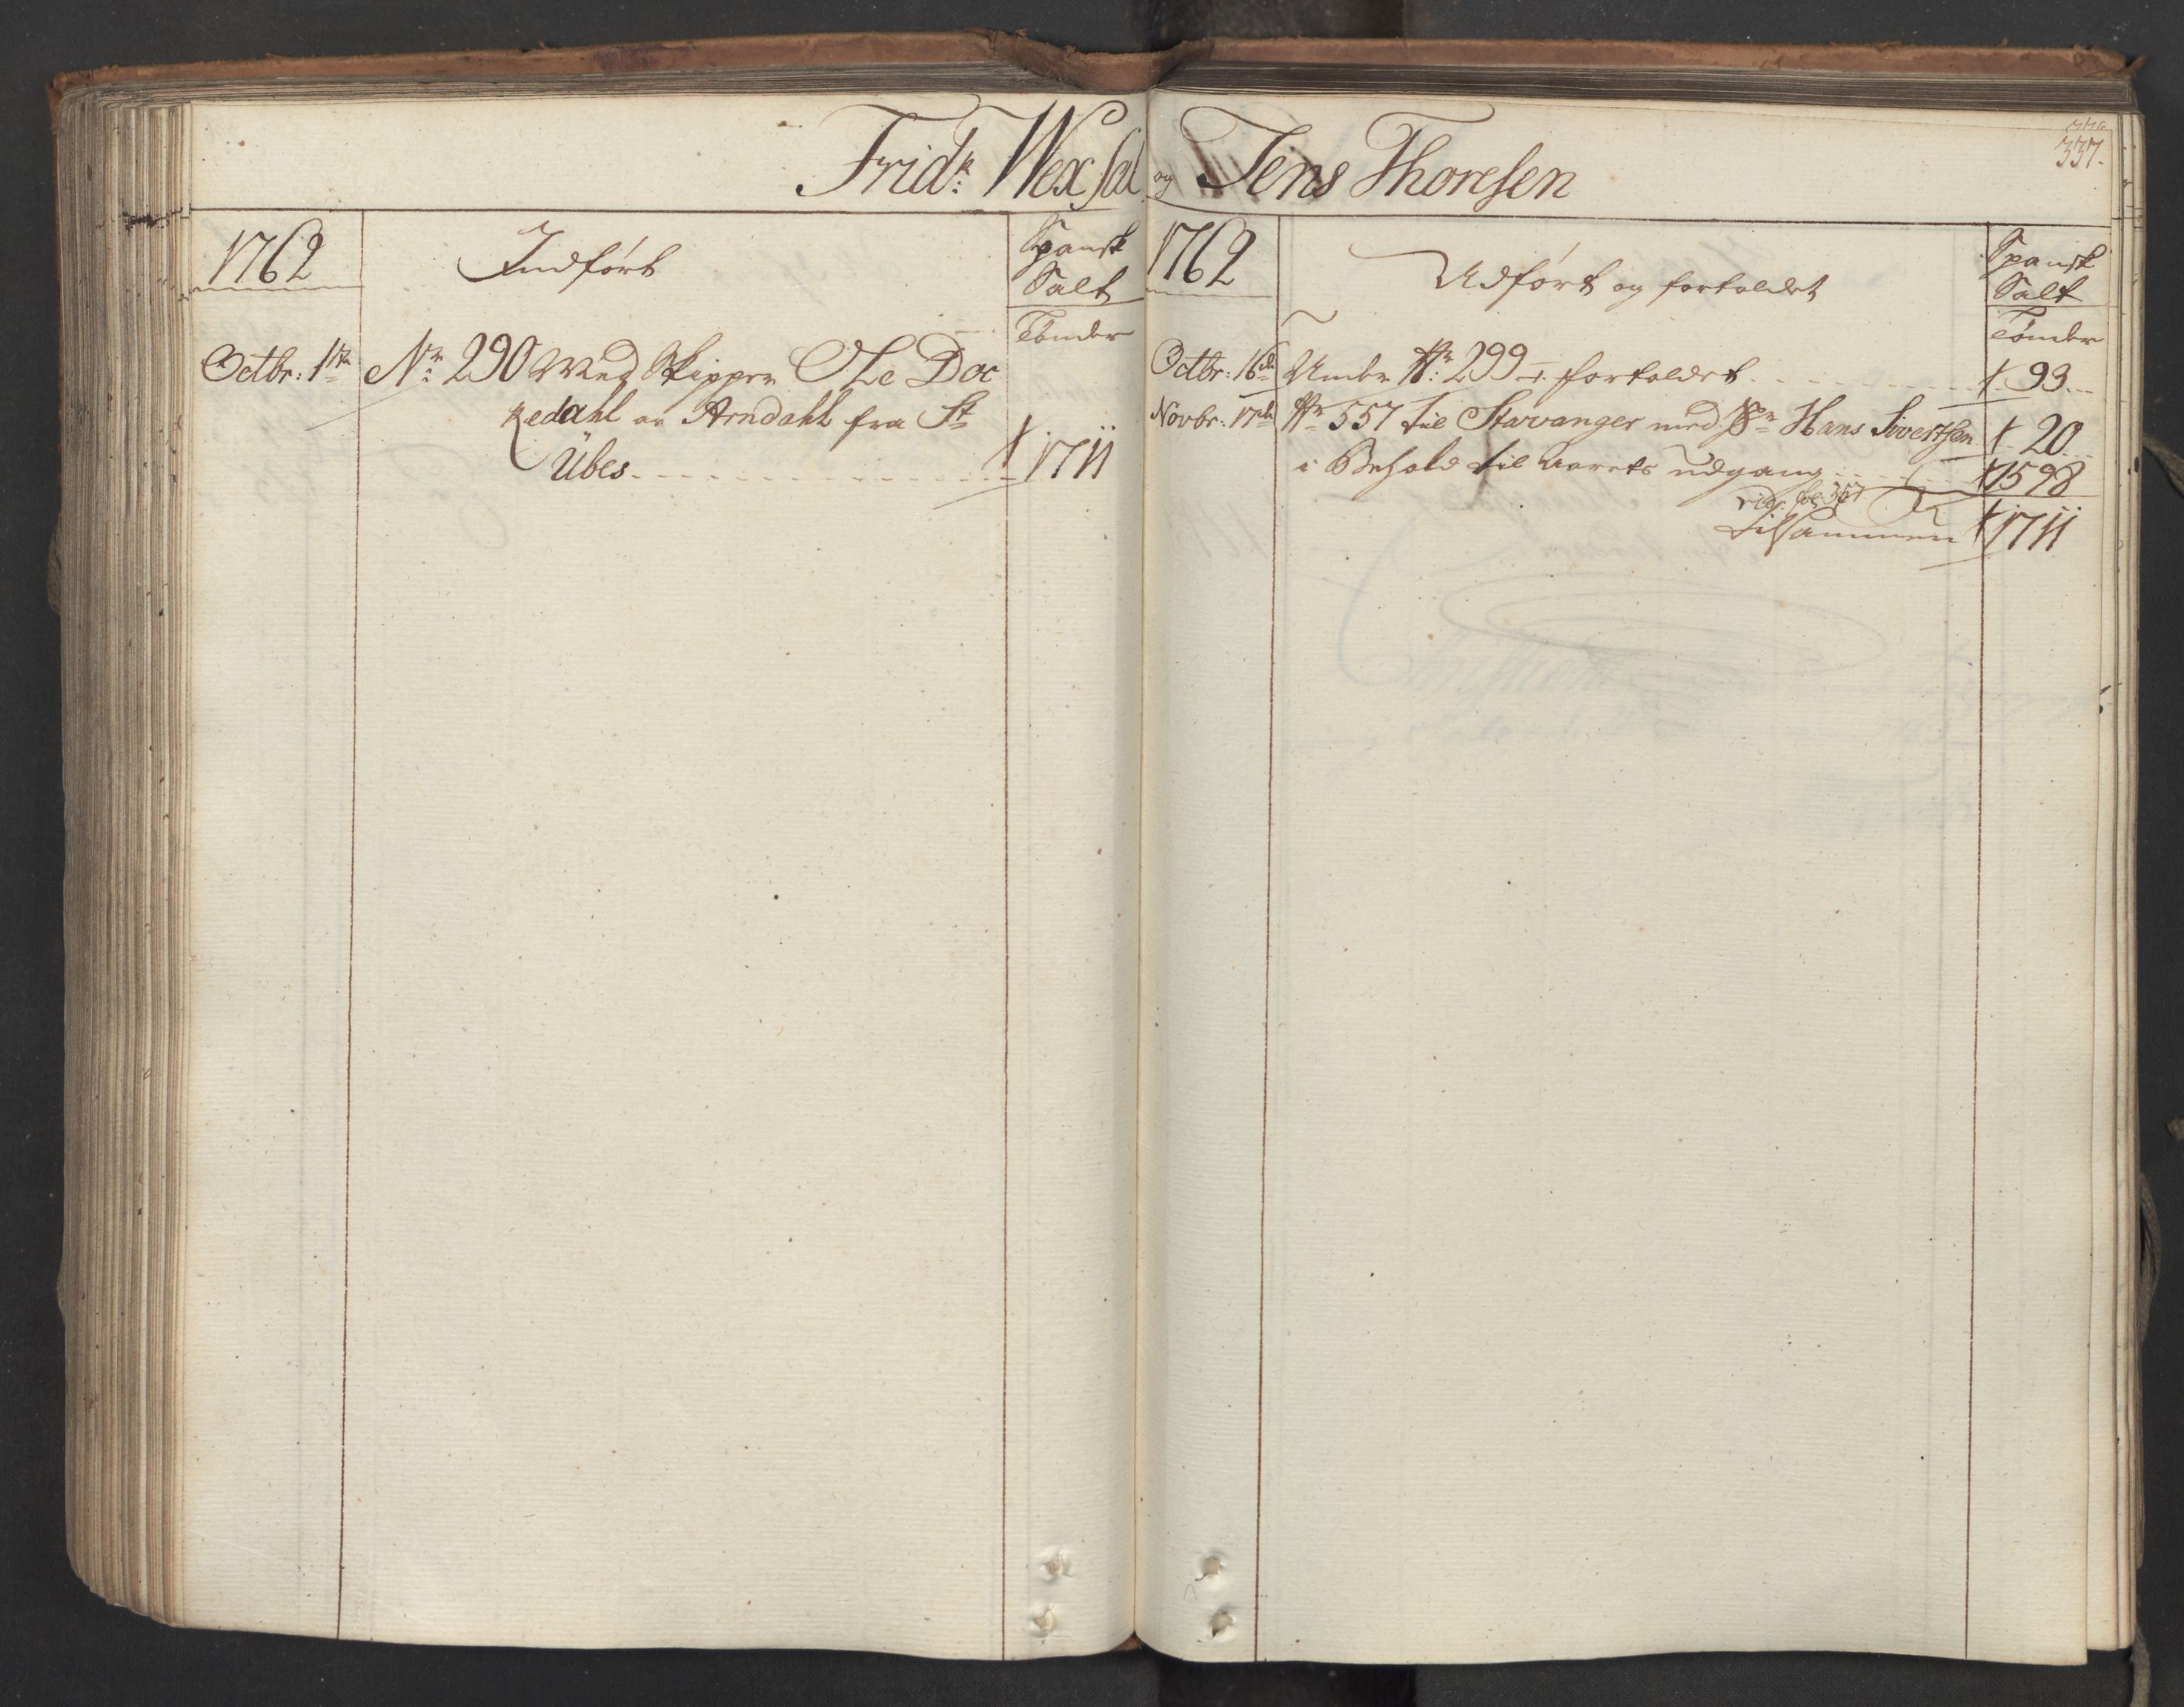 Fridr: Wexsal og Jens Thoresen
337.
1762
Indført
Spansk
Salt
Tønder
Octbr: 1te
Nr: 290 Med Skipper Ole Doc
kedahl av Arndahl fra St
Übes
1711
1762
Udført og fortoldet
Spansk
Salt
Tønder
Octbr: 16de Under Nr: 299 fortoldet 93
Novbr: 17de Nr 557 til Stavanger med Sr Hans Sivertsen 20
i Behold til Aarets udgang 1598
vid: fol: 357
Tilsammen 1711